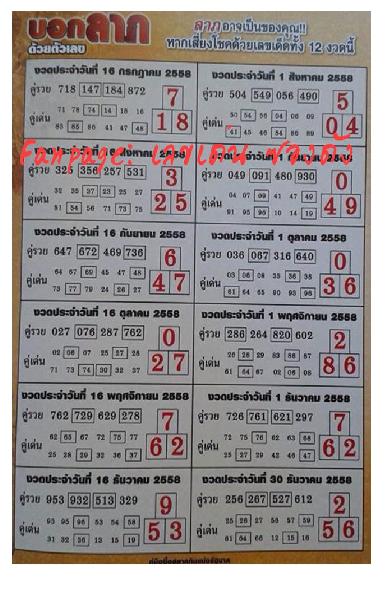 บอกลาภ
ด้วยตัวเลข
ลาภอาจเป็นของคุณ!!
หากเสี่ยงโชคด้วยเลขเด็ดทั้ง 12 งวดนี้
งวดประจำวันที่ 16 กรกฎาคม 2558
คู่รวย 718 147 184 872
7
คู่เด่น 71 78 74 14 18 16
18
งวดประจำวันที่ 1 สิงหาคม 2558
คู่รวย 504 549 056 490
5
คู่เด่น
04
41 45 46 54 86 89
Fanpage: เลขเด่น
สิงหาคม 2558
คู่รวย 325 356 257 531
3
คู่เด่น 32 35 37 23 25 27
25
51 54 56 73 75 75
2558
คู่รวย 049 091 480 930
0
คู่เด่น 04 07 09 41 47 49
49
91 95 96 10 14 19
งวดประจำวันที่ 16 กันยายน 2558
คู่รวย 647 672 469 736
6
คู่เด่น 64 67 69 45 47 48
47
73 77 79 24 26 27
งวดประจำวันที่ 1 ตุลาคม 2558
คู่รวย 036 067 316 640
0
คู่เด่น 03 06 08 35 36 38
36
61 64 65 90 93 98
งวดประจำวันที่ 16 ตุลาคม 2558
คู่รวย 027 076 287 762
0
คู่เด่น 02 06 07 25 27 28
27
71 73 74 30 32 37
งวดประจำวันที่ 1 พฤศจิกายน 2558
คู่รวย 286 264 820 602
2
คู่เด่น 26 28 29 83 86 87
86
61 64 67 02 05 06
งวดประจำวันที่ 16 พฤศจิกายน 2558
คู่รวย 762 729 629 278
7
คู่เด่น 62 65 67 72 75 77
62
25 28 29 32 36 37
งวดประจำวันที่ 1 ธันวาคม 2558
คู่รวย 726 761 621 297
7
คู่เด่น 72 75 76 62 63 68
62
25 27 29 42 46 47
งวดประจำวันที่ 16 ธันวาคม 2558
คู่รวย 953 932 513 329
9
คู่เด่น 93 95 96 53 54 58
53
31 32 35 13 15 19
งวดประจำวันที่ 30 ธันวาคม 2558
คู่รวย 256 267 527 612
2
คู่เด่น 25 26 27 56 57 59
56
61 64 66 12 15 16